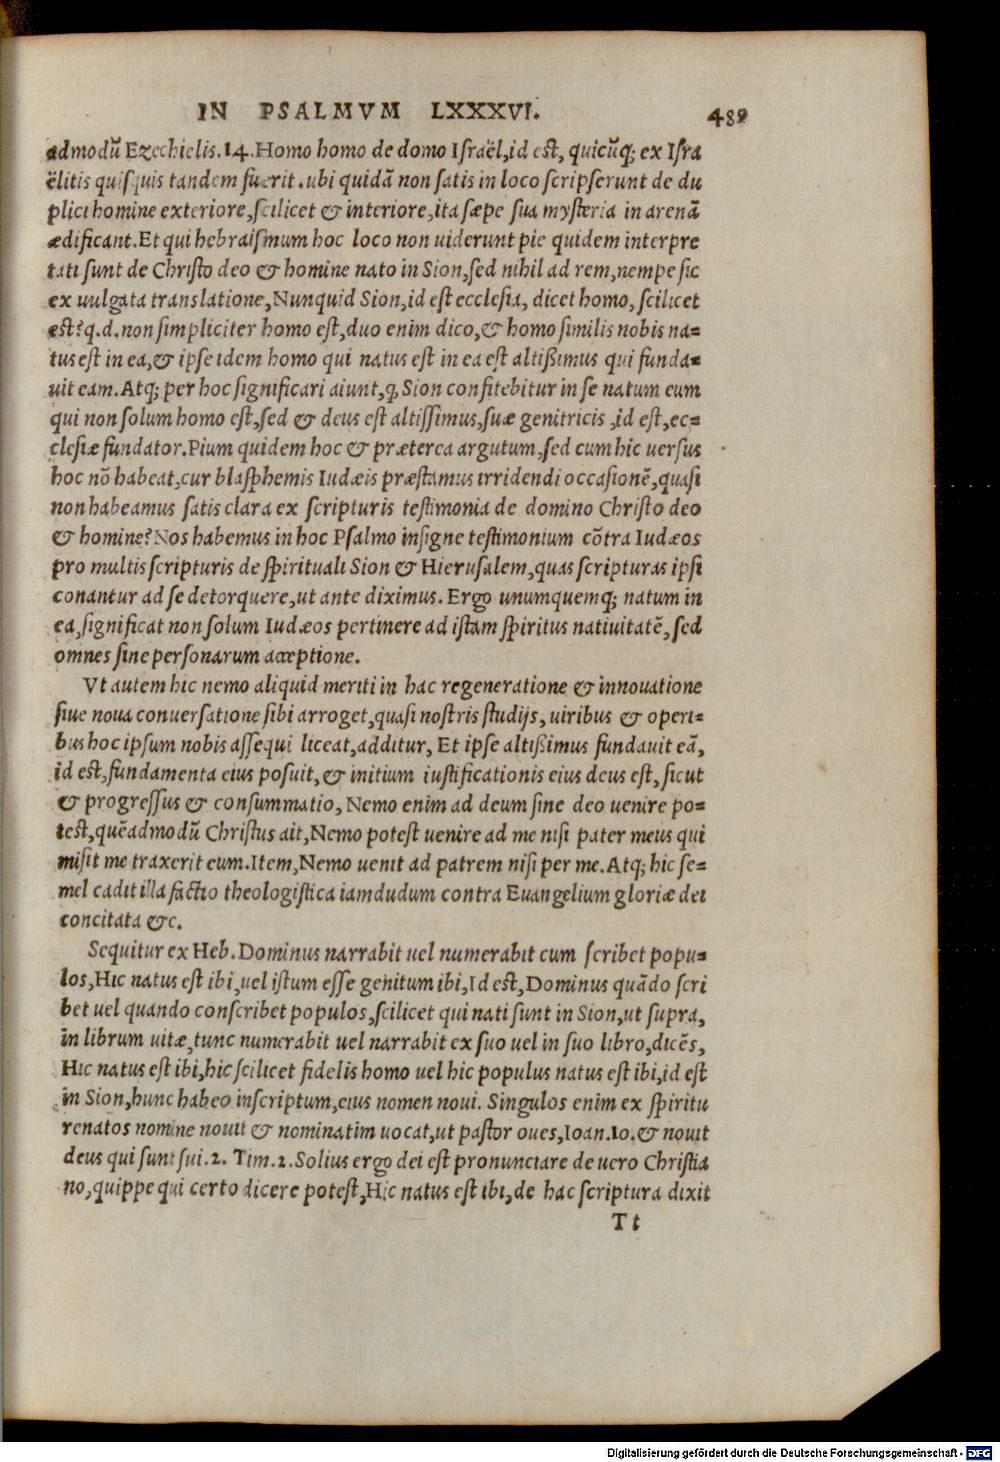 IN PSALMVM LXXXVI. 489
admodũ Ezechielis.14.Homo homo de domo Iſraël,id eſt, quicũq; ex Iſra
ëlitis quiſquis tandem fuerit.ubi quidã non ſatis in loco ſcripſerunt de du
plici homine exteriore,ſcilicet & interiore,ita ſæpe ſua myſteria in arenã
ædificant.Et qui hebraiſmum hoc loco non uiderunt pie quidem interpre
tati ſunt de Chriſto deo & homine nato in Sion,ſed nihil ad rem,nempe ſic
ex uulgata translatione,Nunquid Sion,id eſt eccleſia, dicet homo, ſcilicet
eſt?q.d.non ſimpliciter homo eſt,duo enim dico,& homo ſimilis nobis na=
tus eſt in ea,& ipſe idem homo qui natus eſt in ea eſt altißimus qui funda=
uit eam.Atq; per hoc ſignificari aiunt,ꝙ Sion confitebitur in ſe natum eum
qui non ſolum homo eſt,ſed & deus eſt altiſſimus,ſuæ genitricis ,id eſt,ec=
cleſiæ fundator.Pium quidem hoc & præterea argutum,ſed cum hic uerſus
hoc nõ habeat,cur blaſphemis Iudæis præſtamus irridendi occaſionẽ,quaſi
non habeamus ſatis clara ex ſcripturis teſtimonia de domino Chriſto deo
& homine?Nos habemus in hoc Pſalmo inſigne teſtimonium cõtra Iudæos
pro multis ſcripturis de ſpirituali Sion & Hieruſalem,quas ſcripturas ipſi
conantur ad ſe detorquere,ut ante diximus. Ergo unumquemq; natum in
ea,ſignificat non ſolum Iudæos pertinere ad iſtam ſpiritus natiuitatẽ, ſed
omnes ſine perſonarum acceptione.
Vt autem hic nemo aliquid meriti in hac regeneratione & innouatione
ſiue noua conuerſatione ſibi arroget,quaſi noſtris ſtudijs, uiribus & operi=
bus hoc ipſum nobis aſſequi liceat,additur, Et ipſe altißimus fundauit eã,
id eſt,fundamenta eius poſuit,& initium iuſtificationis eius deus eſt, ſicut
& progreſſus & conſummatio, Nemo enim ad deum ſine deo uenire po=
teſt,quẽadmodũ Chriſtus ait,Nemo poteſt uenire ad me niſi pater meus qui
miſit me traxerit eum.Item,Nemo uenit ad patrem niſi per me. Atq; hic ſe=
mel cadit illa factio theologiſtica iamdudum contra Euangelium gloriæ dei
concitata &c.
Sequitur ex Heb. Dominus narrabit uel numerabit cum ſcribet popu=
los,Hic natus eſt ibi,uel iſtum eſſe genitum ibi,Id eſt,Dominus quãdo ſcri
bet uel quando conſcribet populos,ſcilicet qui nati ſunt in Sion,ut ſupra,
in librum uitæ,tunc numerabit uel narrabit ex ſuo uel in ſuo libro,dicẽs,
Hic natus eſt ibi,hic ſcilicet fidelis homo uel hic populus natus eſt ibi,id eſt
in Sion,hunc habeo inſcriptum,eius nomen noui. Singulos enim ex ſpiritu
renatos nomine nouit & nominatim uocat,ut paſtor oues,Ioan.10.& nouit
deus qui ſunt ſui.2. Tim.2.Solius ergo dei eſt pronunciare de uero Chriſtia
no,quippe qui certo dicere poteſt,Hic natus eſt ibi,de hac ſcriptura dixit
Tt
Digitalisierung gefördert durch die Deutsche Forschungsgemeinschaft - DFG